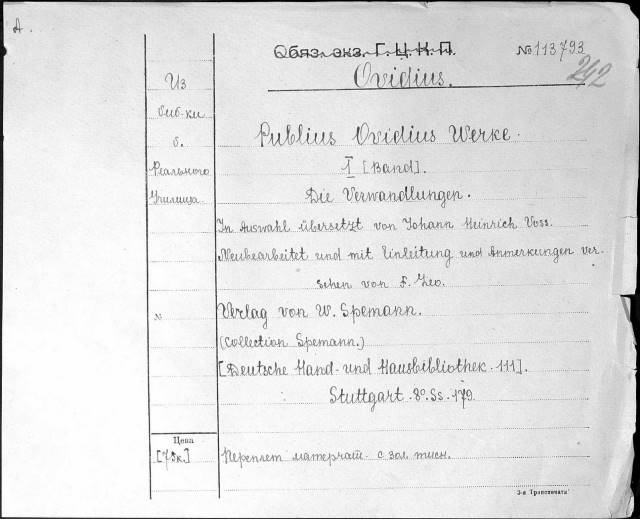 А.
Обяз. экз. Г.Ц.К.П.
№113793
242
Ovidius.
Из
биб-ки
б.
Реального
Училища
Publius Ovidius Werke.
I [Band].
Die Verwandlungen.
In Auswahl übersetzt von Johann Heinrich Voss.
Neubearbeitet und mit Einleitung und Anmerkungen ver-
sehen von F. Leo.
№
Verlag von W. Spemann.
(Collection Spemann.)
[Deutsche Hand- und Hausbibliothek. 111].
Stuttgart. 8º. Ss. 179.
Цена
[75к.]
Переплет матерчат. с зол. тисн.
3-я Транспечать